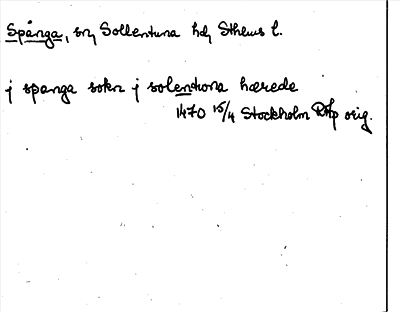 Spånga, sn, Sollentuna hd, Sthlms l.
j spanga sokn j solendrona hærede
1470 15/4 Stockholm RAp orig.